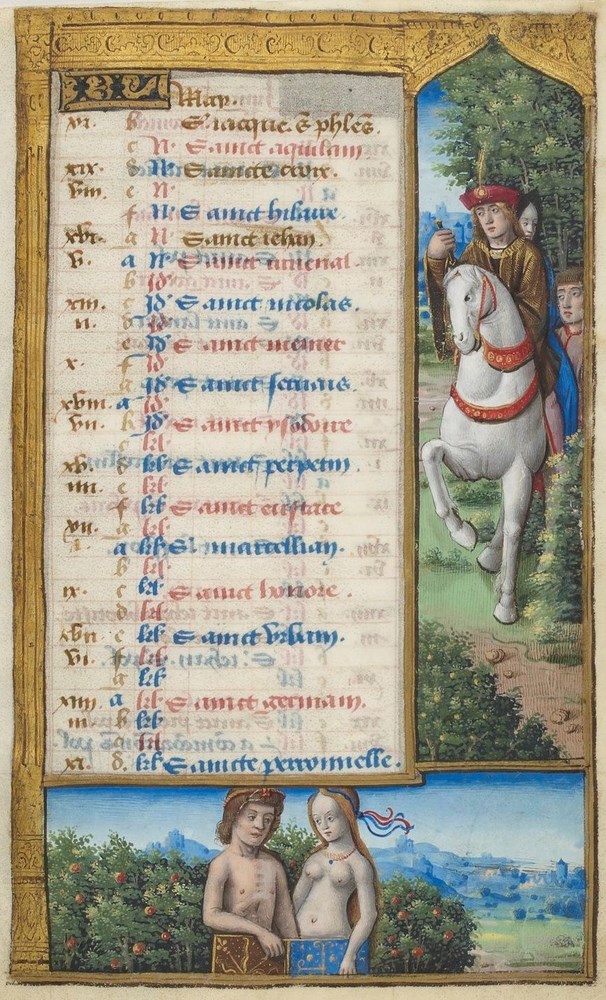 May.
xi. b S. iacque. S phles.
c N Sainct aquilain
xix d N Saincte croix.
viii. e N
f N Sainct hilaire.
xvi. g N Sainct iehan
v. a N Sainct iuvenal.
b Id'
xiii. c Id' Sainct nicolas.
ii. d Id'
e Id' Sainct memer
x. f Id'
g Id' Sainct servais.
xviii. a Id'
vii. b Id' Sainct ysodoire
c kl
xv. d kl Sainct perpetin.
iiii. e kl
f kl Sainct eustace
xii. g kl
i. a kl S. marcellian.
b kl
ix. c kl Sainct honore.
d kl
xvii e kl Sainct Urbain.
vi. f kl
g kl
xiiii. a kl Sainct germain.
iii b kl
c kl
xi. d. kl Saincte perronnelle.